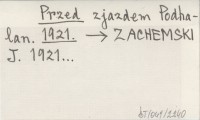 Przed zjazdem Podha-
lan. 1921. → ZACHEMSKI
J. 1921...
bT/041/2240